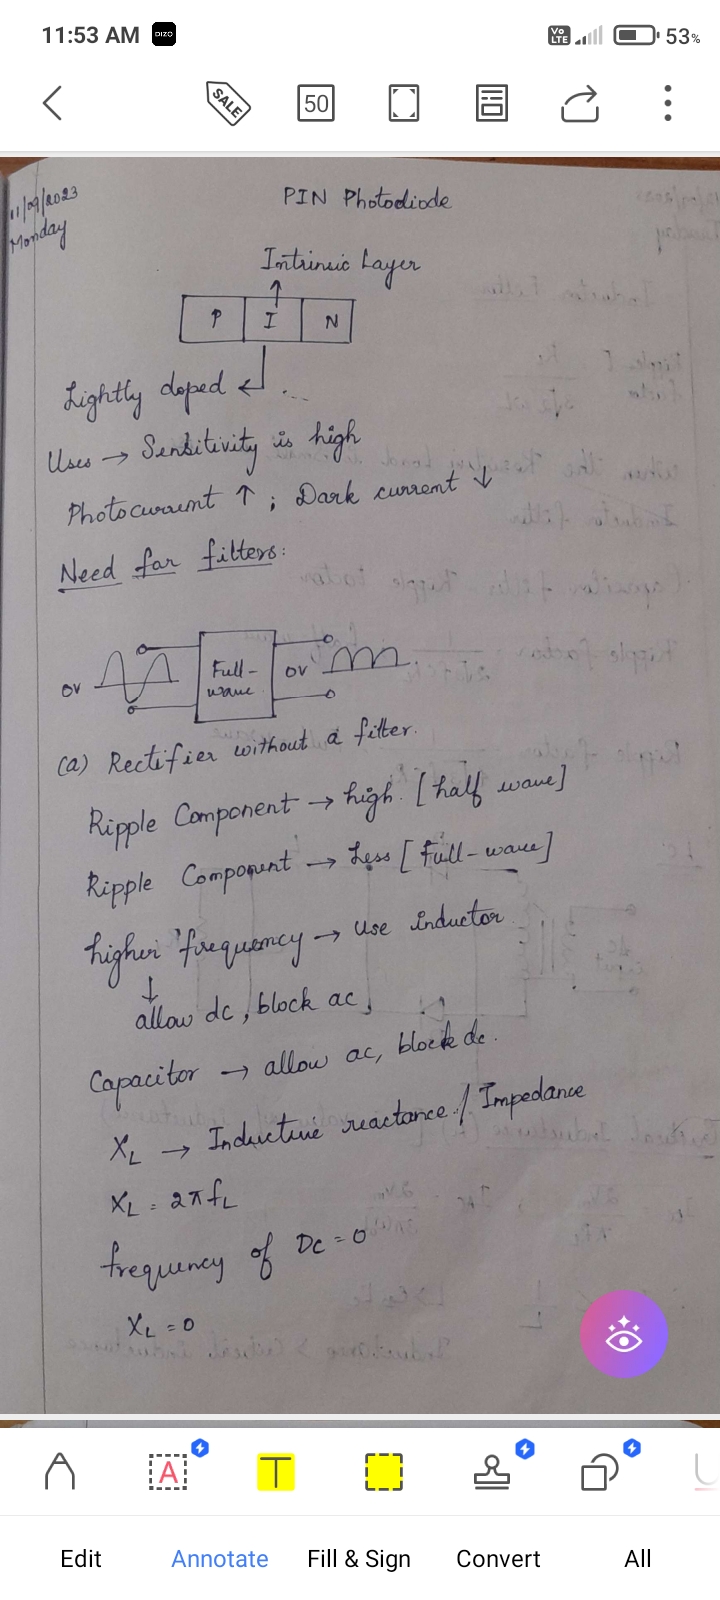 11:53 AM DIZO Vo LTE 53%
SALE 50
11/09/2023
Monday
PIN Photodiode
Intrinsic Layer
P I N
Lightly doped ↲ ...
Uses → Sensitivity is high
Photocurrent ↑ ; Dark current ↓
Need for filters:
0V Full-wave 0V
(a) Rectifier without a filter.
Ripple Component → high. [half wave]
Ripple Component → Less [Full-wave]
higher frequency → use inductor
↓
allow dc, block ac,
Capacitor → allow ac, block dc.
XL → Inductive reactance / Impedance
XL = 2πfL
frequency of DC = 0
XL = 0
A T
Edit Annotate Fill & Sign Convert All